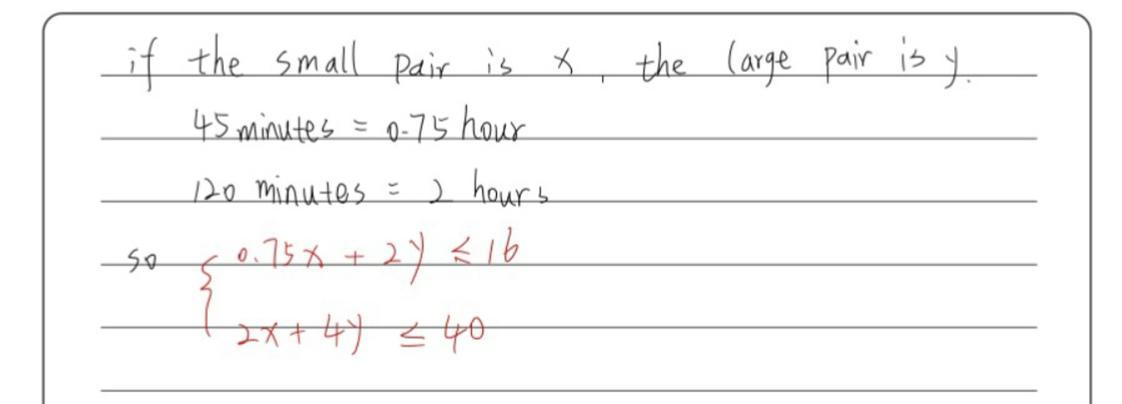 if the small pair is x, the large pair is y.
45 minutes = 0.75 hour
120 minutes = 2 hours
so { 0.75x + 2y ≤ 16
2x + 4y ≤ 40